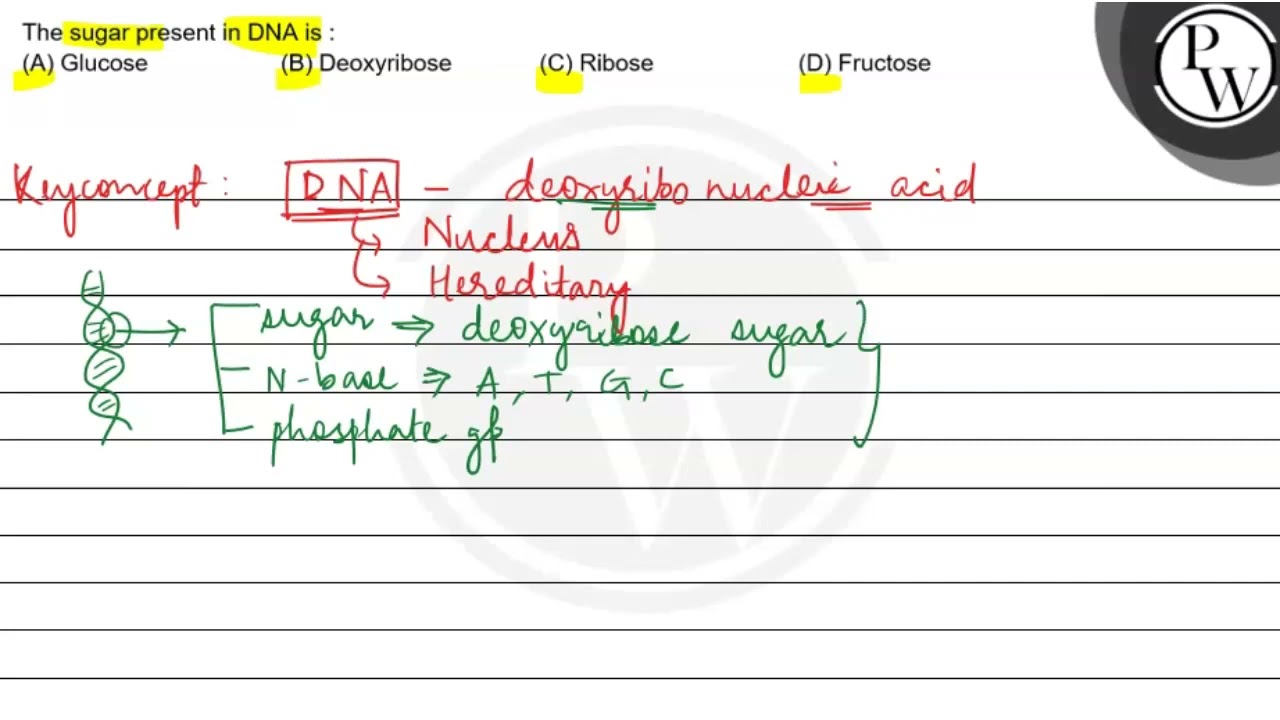 The sugar present in DNA is :
(A) Glucose (B) Deoxyribose (C) Ribose (D) Fructose
P
W
Keyconcept : DNA – deoxyribo nucleic acid
Nucleus
Hereditary
sugar ⇒ deoxyribose sugar
N-base ⇒ A, T, G, C
phosphate gp
P
W